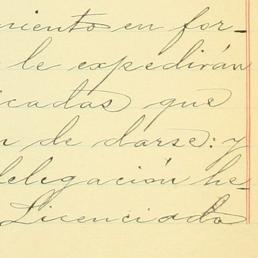 miento en for-
le expedirán
icadas que
n de darse: y
delegación he-
Licenciado